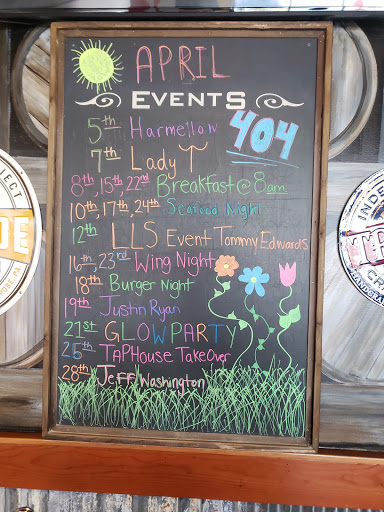 APRIL
EVENTS
5th Harmellow 404
7th Lady T
8th, 15th, 22nd Breakfast @ 8am
10th, 17th, 24th Seafood Night
12th LLS Event Tommy Edwards
16th, 23rd Wing Night
18th Burger Night
19th Justin Ryan
21st GLOWPARTY
25th TAPHouse TakeOver
28th Jeff Washington